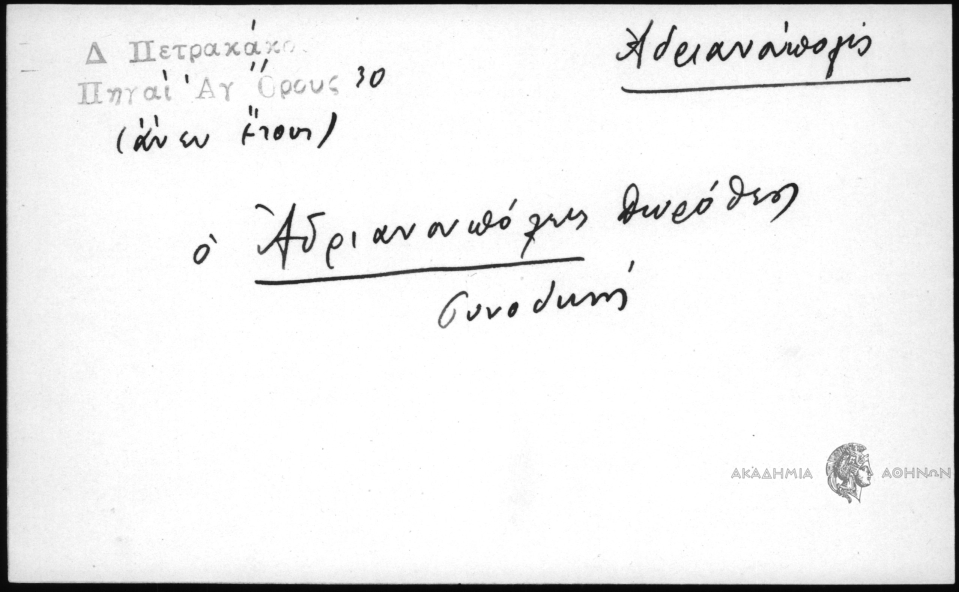 Δ Πετρακάκο.
Πηγαὶ Ἁγ Ὄρους 30
(ἄνευ ἔτους)
Ἀδριανούπολις
ὁ Ἀδριανουπόλεως Δωρόθεος
συνοδικῆς
ΑΚΑΔΗΜΙΑ ΑΘΗΝΩΝ